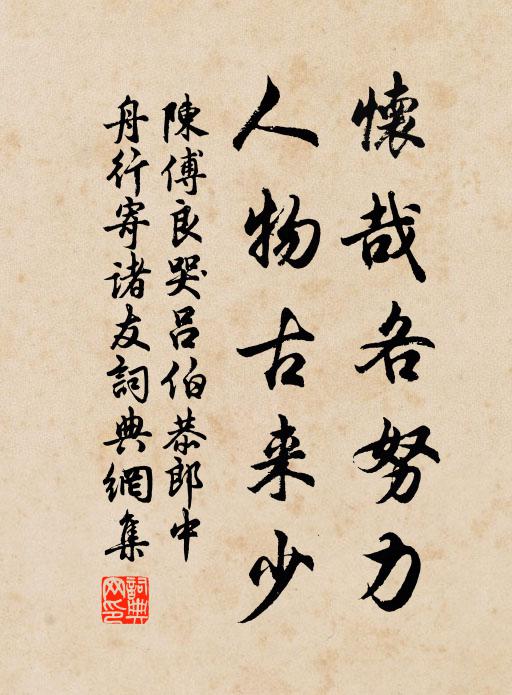 懷哉各努力
人物古来少
陳傅良哭吕伯恭郎中
舟行寄诸友詞典網集
詞典網印